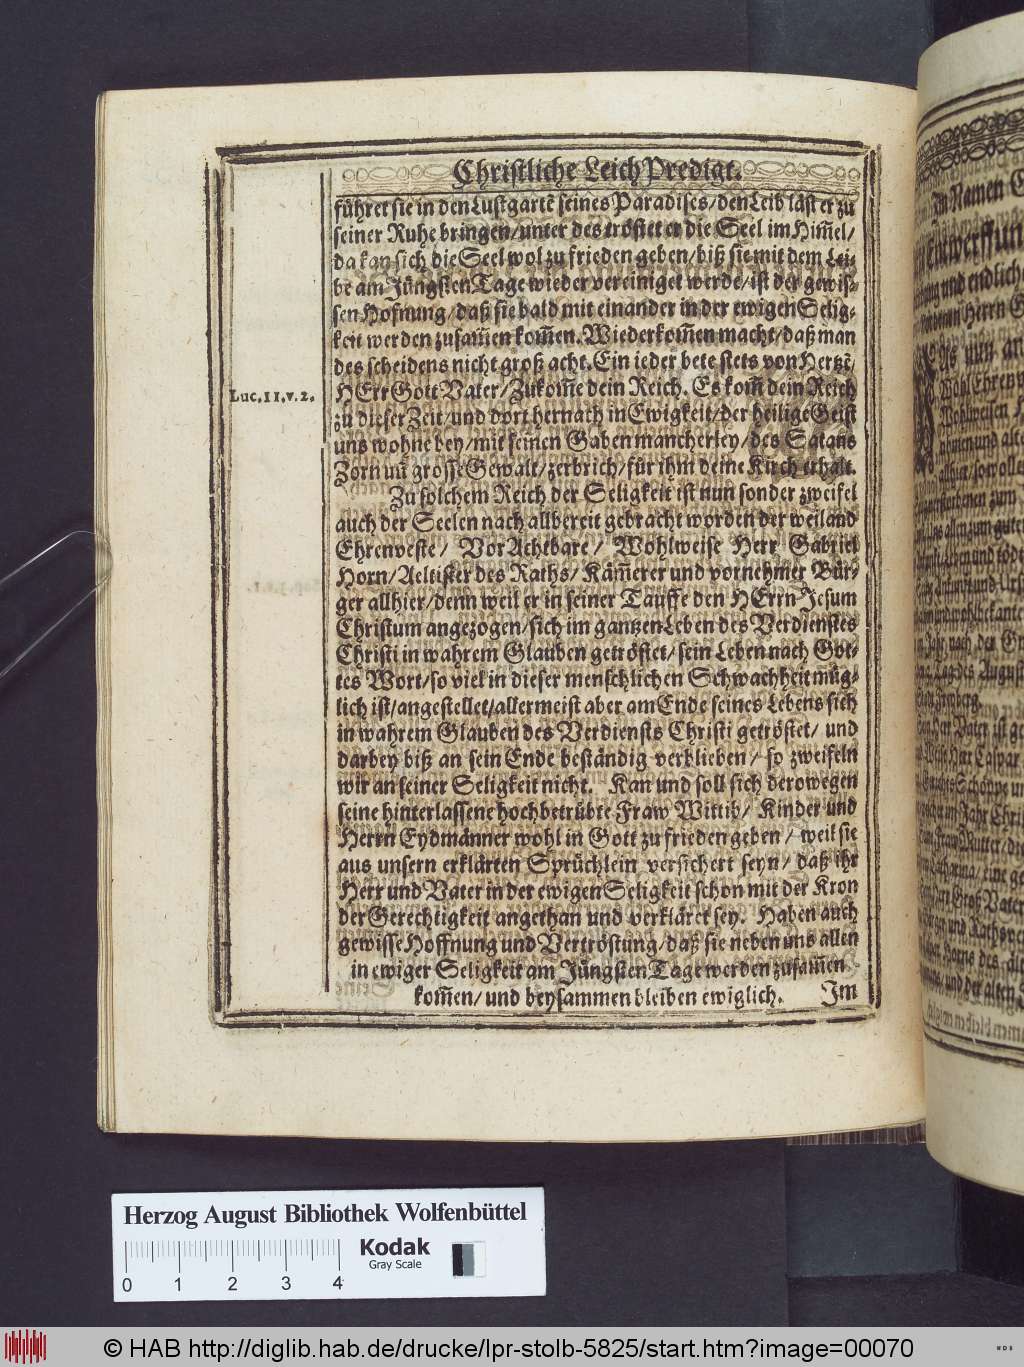 Christliche Leich Predigt.
führet sie in den Lustgartē seines Paradises/den Leib läst er zu
seiner Ruhe bringen/unter des tröstet er die Seel im Him̃el/
da kan sich die Seel wol zu frieden geben/biß sie mit dem Lei-
be am Jüngsten Tage wieder vereiniget werde/ist der gewis-
sen Hofnung/daß sie bald mit einander in der ewigen Selig-
keit werden zusam̃en kom̃en. Wiederkom̃en macht/daß man
des scheidens nicht groß acht. Ein ieder bete stets von Hertzē/
Luc. 11. v. 2.
HErr Gott Vater/Zukom̃e dein Reich. Es kom̃ dein Reich
zu dieser Zeit/und dort hernath in Ewigkeit/der heilige Geist
uns wohne bey/mit seinen Gaben mancherley/des Satans
Zorn un̄ grosse Gewalt/zerbrich/für ihm deine Kirch erhalt.
Zu solchem Reich der Seligkeit ist nun sonder zweifel
auch der Seelen nach allbereit gebracht worden der weiland
Ehrenveste/ VorAchtbare/ Wohlweise Herr Gabriel
Horn/Aeltister des Raths/Käm̃erer und vornehmer Bür-
ger allhier/denn weil er in seiner Tauffe den HErrn Jesum
Christum angezogen/sich im gantzen Leben des Verdienstes
Christi in wahrem Glauben getröstet/sein Leben nach Got-
tes Wort/so viel in dieser menschlichen Schwachheit müg-
lich ist/angestellet/allermeist aber am Ende seines Lebens sich
in wahrem Glauben des Verdiensts Christi getröstet/ und
darbey biß an sein Ende beständig verblieben/ so zweifeln
wir an seiner Seligkeit nicht. Kan und soll sich derowegen
seine hinterlassene hochbetrübte Fraw Wittib/ Kinder und
Herrn Eydmänner wohl in Gott zu frieden geben/ weil sie
aus unsern erklärten Sprüchlein versichert seyn/ daß ihr
Herr und Vater in der ewigen Seligkeit schon mit der Kron
der Gerechtigkeit angethan und verkläret sey. Haben auch
gewisse Hoffnung und Vertröstung/daß sie neben uns allen
in ewiger Seligkeit am Jüngsten Tage werden zusam̃en
kom̃en/und beysammen bleiben ewiglich. Im
Im Namen
und endlich
Herrn
Wohl Ehren
Wohlweisen
zum
August
Herr Vater ist
Herr Caspar
Schöppe
im Jahr
Mutter
Groß Vater
Horns des
und der alten
Herzog August Bibliothek Wolfenbüttel
Kodak
Gray Scale
0 1 2 3 4
© HAB http://diglib.hab.de/drucke/lpr-stolb-5825/start.htm?image=00070